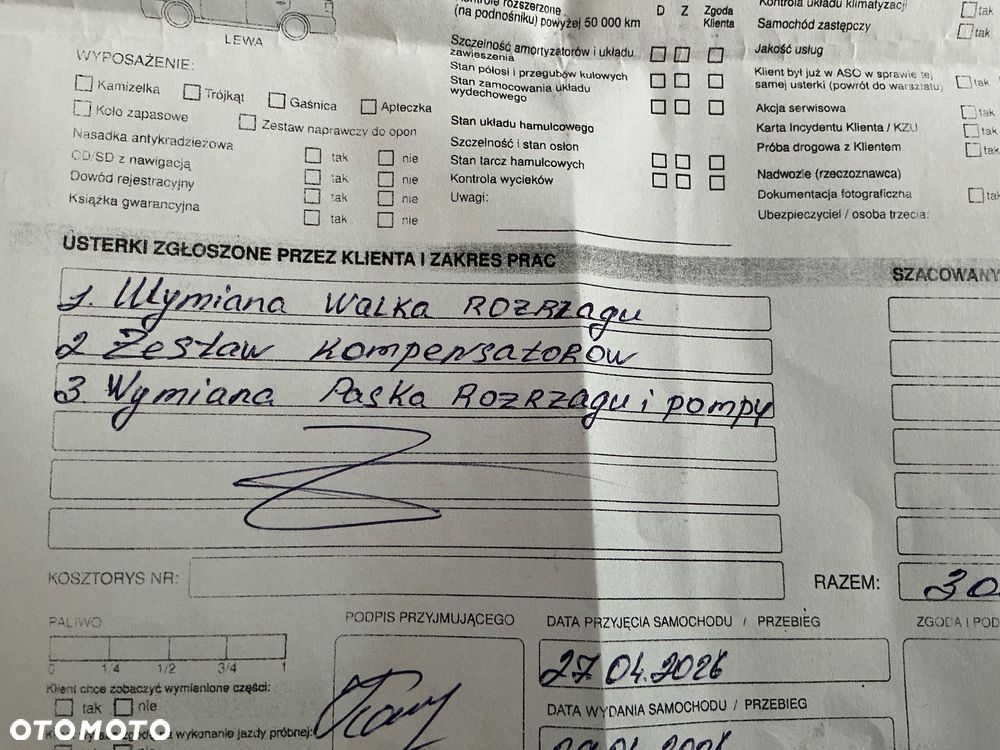 LEWA
WYPOSAŻENIE:
Kamizelka Trójkąt Gaśnica Apteczka
Koło zapasowe Zestaw naprawczy do opon
Nasadka antykradzieżowa
CD/SD z nawigacją tak nie
Dowód rejestracyjny tak nie
Książka gwarancyjna tak nie
tak nie
rozszerzone
(na podnośniku) powyżej 50 000 km
D Z Zgoda
Klienta
Szczelność amortyzatorów i układu
zawieszenia
Stan półosi i przegubów kulowych
Stan zamocowania układu
wydechowego
Stan układu hamulcowego
Szczelność i stan osłon
Stan tarcz hamulcowych
Kontrola wycieków
Uwagi:
Kontrola układu klimatyzacji tak
Samochód zastępczy tak
Jakość usług
Klient był już w ASO w sprawie tej
samej usterki (powrót do warsztatu) tak
Akcja serwisowa tak
Karta Incydentu Klienta / KZU tak
Próba drogowa z Klientem tak
Nadwozie (rzeczoznawca)
Dokumentacja fotograficzna tak
Ubezpieczyciel / osoba trzecia:
USTERKI ZGŁOSZONE PRZEZ KLIENTA I ZAKRES PRAC
SZACOWANY
1. Wymiana Walka ROZRZAGU
2 Zestaw kompensatorów
3. Wymiana Paska ROZRZAGU i pompy
KOSZTORYS NR:
RAZEM: 30
PALIWO
0 1/4 1/2 3/4 1
Klient chce zobaczyć wymienione części:
tak nie
wykonanie jazdy próbnej:
PODPIS PRZYJMUJĄCEGO
DATA PRZYJĘCIA SAMOCHODU / PRZEBIEG
27.04.2026
DATA WYDANIA SAMOCHODU / PRZEBIEG
ZGODA I POD
OTOMOTO